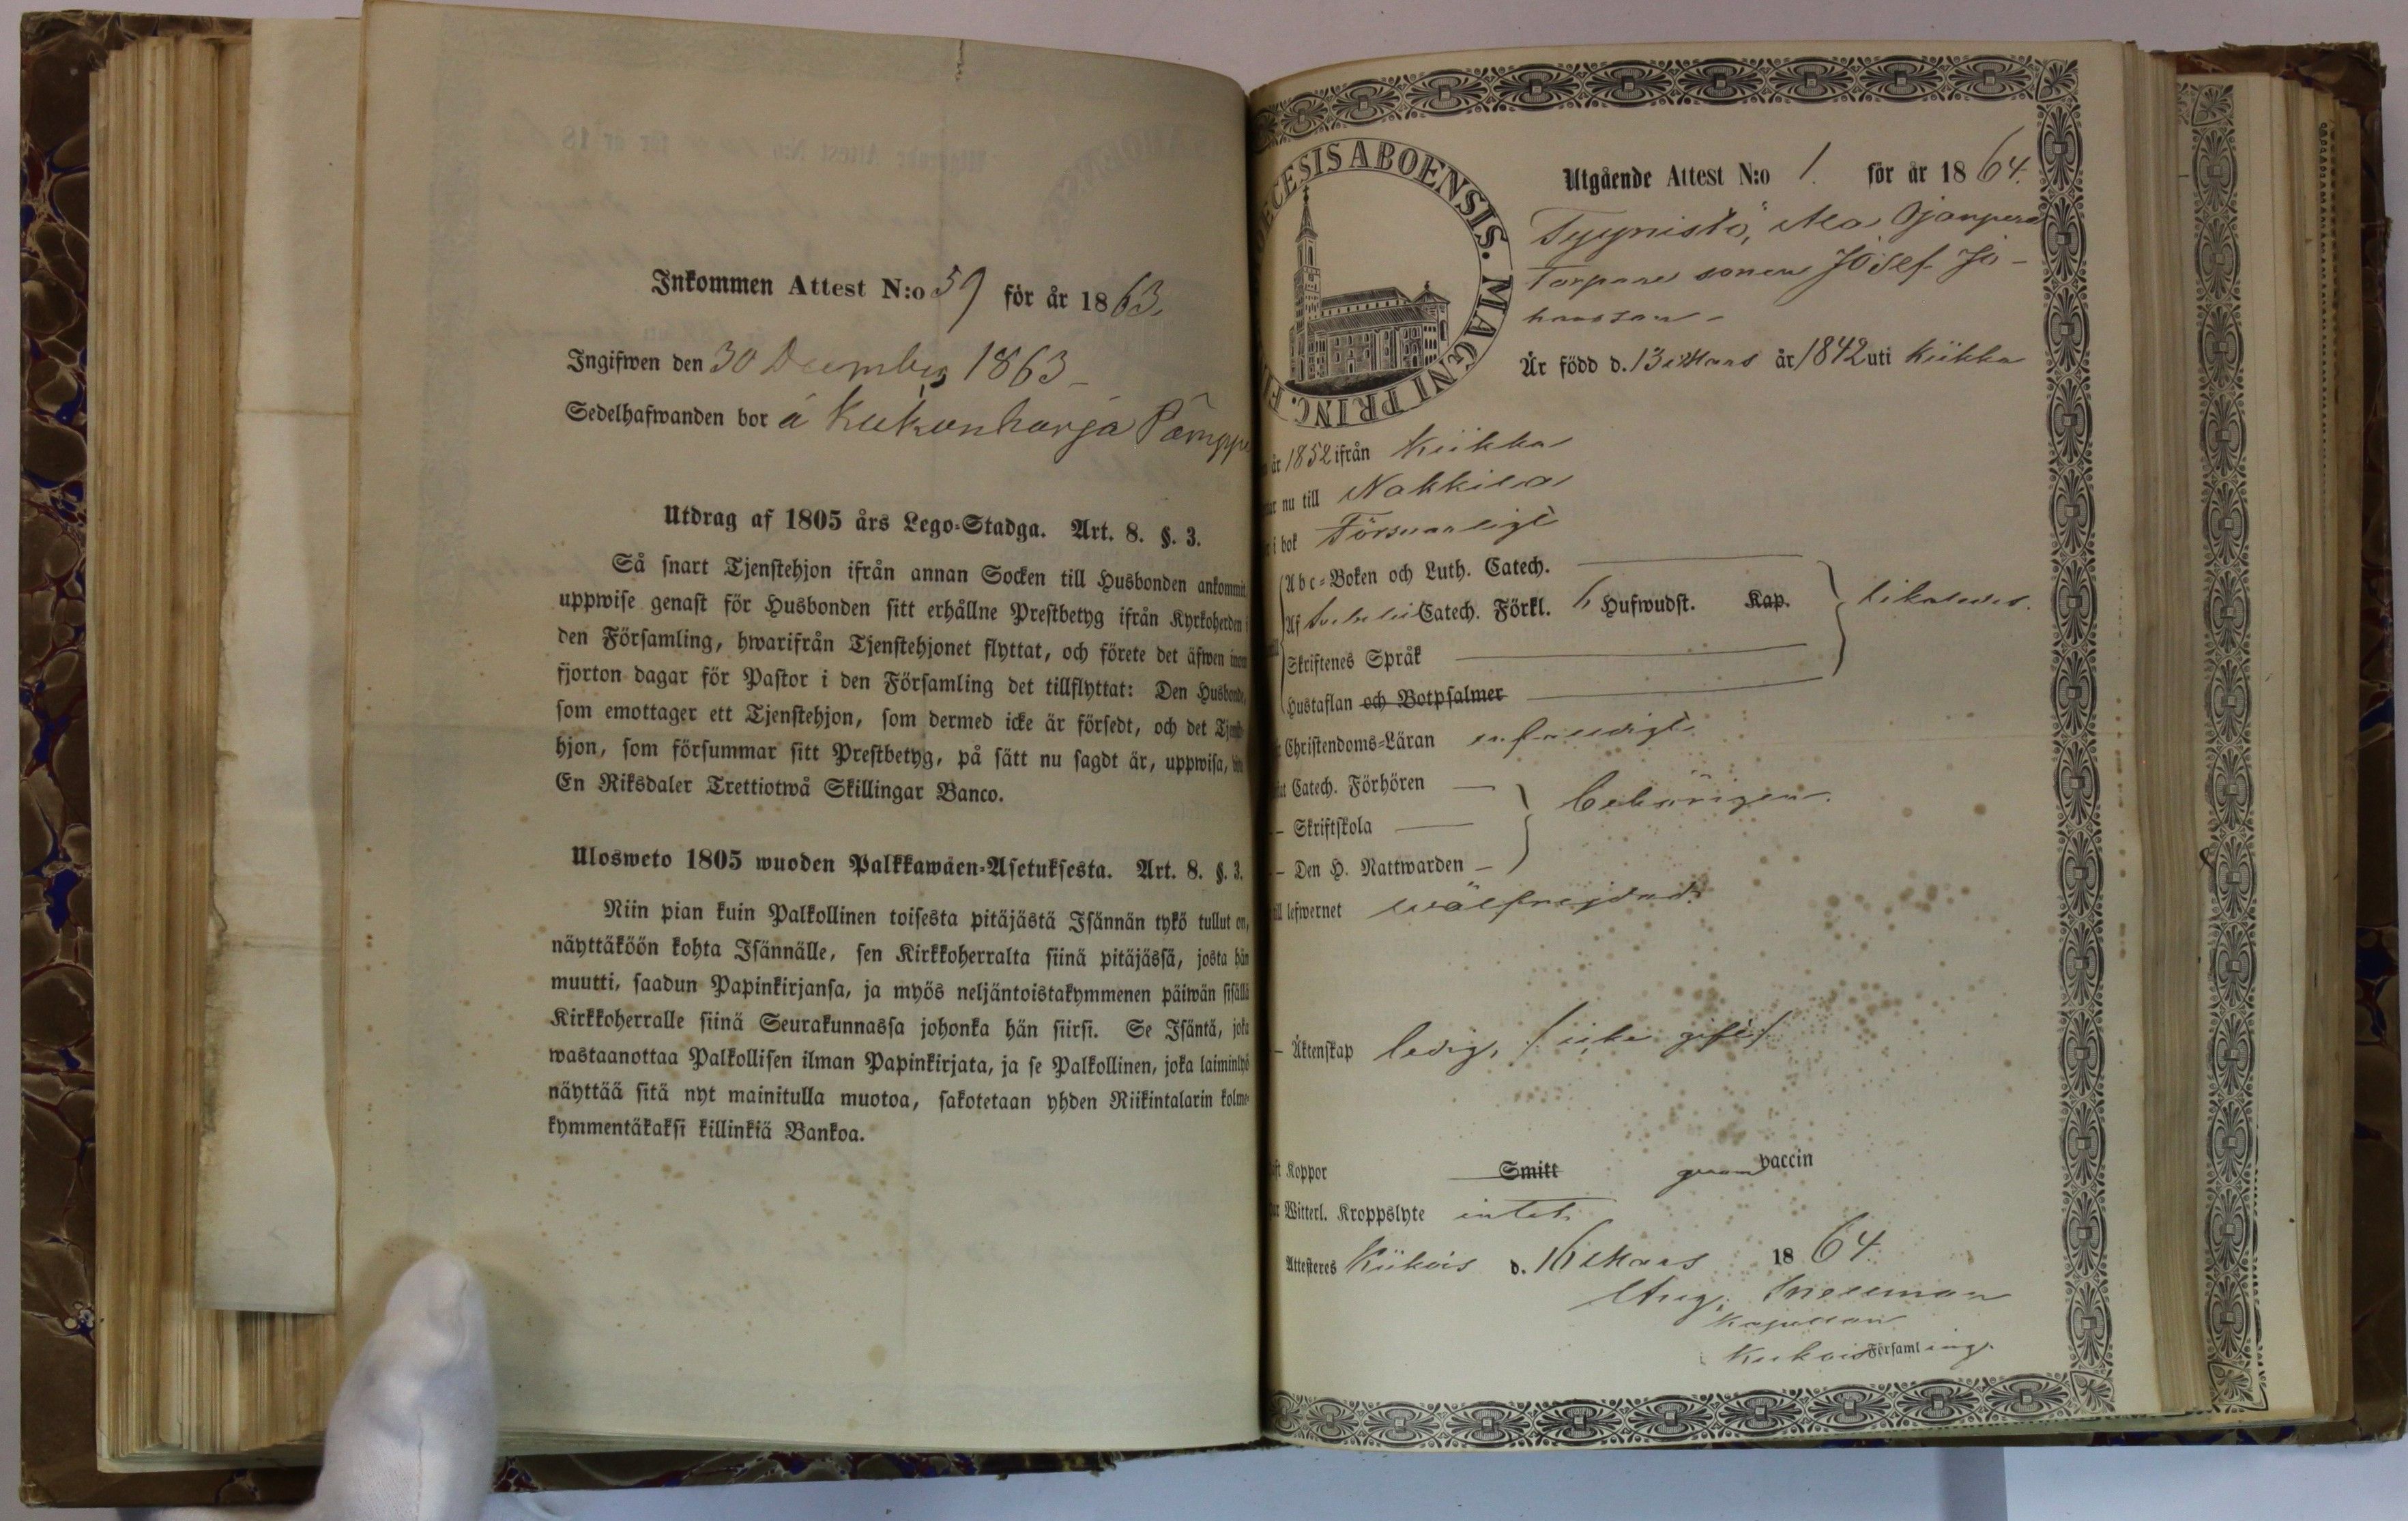 Inkommen Attest N:o 59 för år 1863.
Ingifwen den 30 December 1863 –
Sedelhafwanden bor å Kukonharja Pamppu
Utdrag af 1805 års Lego-Stadga. Art. 8. §. 3.
Så snart Tjenstehjon ifrån annan Socken till Husbonden ankommit,
uppwise genast för Husbonden sitt erhållne Prestbetyg ifrån Kyrkoherden i
den Församling, hwarifrån Tjenstehjonet flyttat, och förete det äfwen inom
fjorton dagar för Pastor i den Församling det tillflyttat: Den Husbonde,
som emottager ett Tjenstehjon, som dermed icke är försedt, och det Tjenste-
hjon, som försummar sitt Prestbetyg, på sätt nu sagdt är, uppwisa,
En Riksdaler Trettiotwå Skillingar Banco.
Ulosweto 1805 wuoden Palkkawäen-Asetuksesta. Art. 8. §. 3.
Niin pian kuin Palkollinen toisesta pitäjästä Isännän tykö tullut on,
näyttäköön kohta Isännälle, sen Kirkkoherralta siinä pitäjässä, josta hän
muutti, saadun Papinkirjansa, ja myös neljäntoistakymmenen päiwän sisällä
Kirkkoherralle siinä Seurakunnassa johonka hän siirsi. Se Isäntä, joka
wastaanottaa Palkollisen ilman Papinkirjata, ja se Palkollinen, joka laiminlyö
näyttää sitä nyt mainitulla muotoa, sakotetaan yhden Riikintalarin kolme-
kymmentäkaksi killinkiä Bankoa.
ECESIS ABOENSIS. MAGNI PRINC. F
Utgående Attest N:o 1. för år 1864.
Tyynistö, Ala Ojanperä
Torpare sonen Josef Jo-
hansson –
Är född d. 13 Mars år 1842 uti Kiikka
år 1852 ifrån Kiikka
nu till Nakkila
i bok Försvarligt
Abc-Boken och Luth. Catech.
Af Svebelii Catech. Förkl. 6 Hufwudst. Kap. likaledes.
Skriftenes Språk
Hustaflan och Botpsalmer
Christendoms-Läran enfaldigt
Catech. Förhören
– Skriftskola behörigen.
– Den H. Nattwarden –
till lefwernet wälfrejdad.
– Äktenskap ledig, /icke gift/
Koppor Smitt genom vaccin
Witterl. Kroppslyte intet.
Attesteres Kiikois d. 16 Mars 1864.
Aug.
Kapellan
Kiikois Församling.